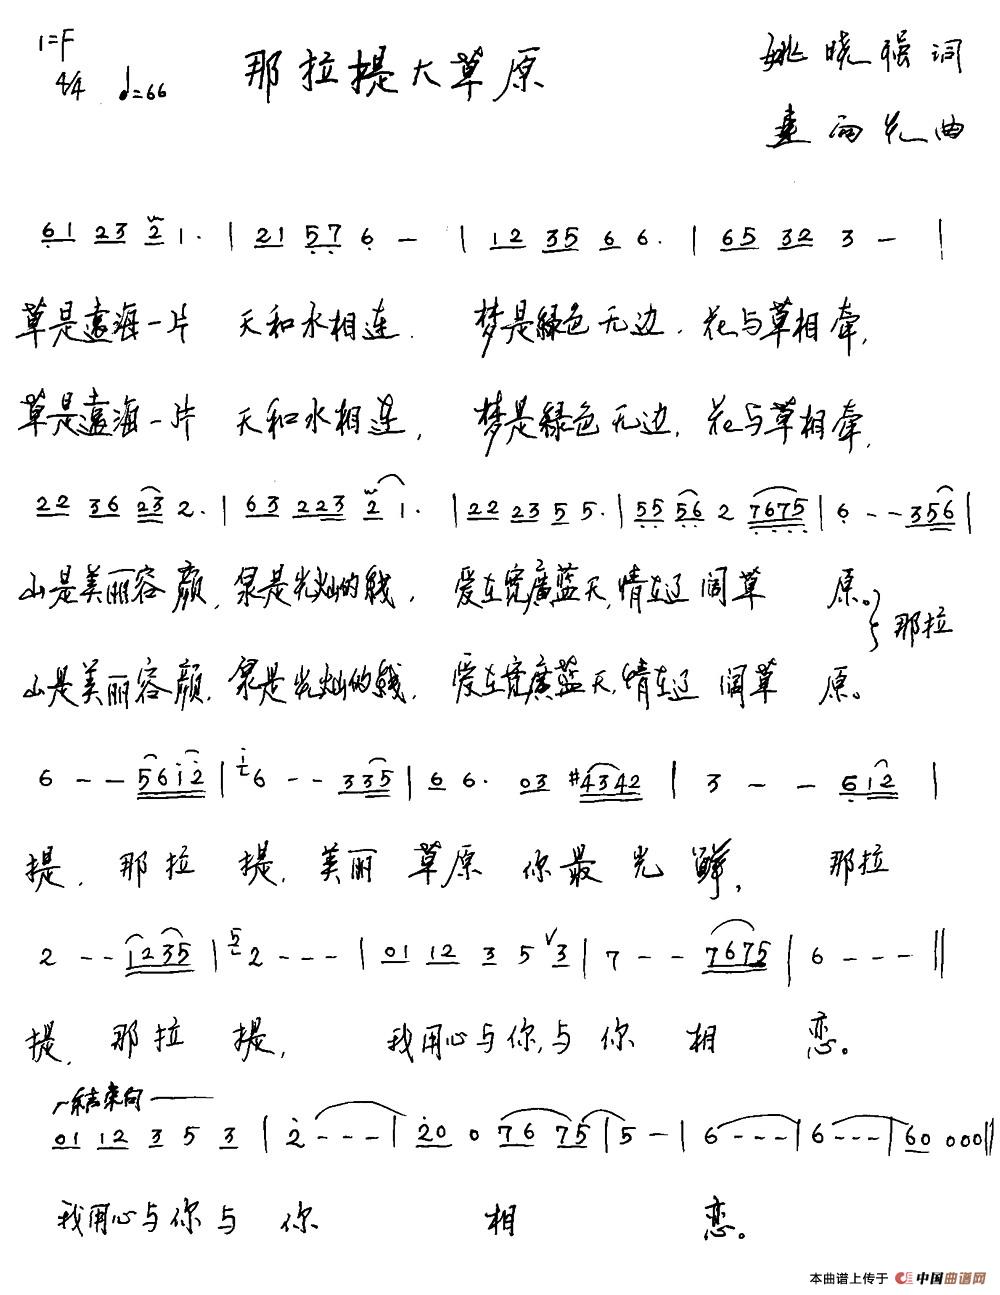 1=F
4/4 ♩=66
那拉提大草原
姚晓强词
雨光曲
61 23 2 1· | 21 57 6 — | 12 35 6 6· | 65 32 3 — |
草是遠海一片 天和水相连. 梦是綠色无边. 花与草相牵,
草是遠海一片 天和水相连, 梦是綠色无边, 花与草相牵,
22 36 23 2· | 63 223 2 1· | 22 23 5 5· | 55 56 2 7675 | 6 - - 356 |
山是美丽容颜, 泉是光灿的线. 爱在宽廣蓝天,情在辽阔草 原。
那拉
山是美丽容颜. 泉是光灿的线. 爱在宽廣蓝天,情在辽阔草 原。
6 - - 5612 | 6 - - 335 | 6 6· 03 #4342 | 3 - - 612 |
提, 那拉提, 美丽草原你最光鲜, 那拉
2 - - 1235 | 5 2 - - - | 01 12 3 5 V 3 | 7 - - 7675 | 6 - - - ‖
提, 那拉提, 我用心与你,与你相恋。
结束句
01 12 3 5 3 | 2 - - - | 20 0 76 75 | 5 — | 6 - - - | 6 - - - | 60 000 ‖
我用心与你与你 相 恋。
本曲谱上传于 中国曲谱网